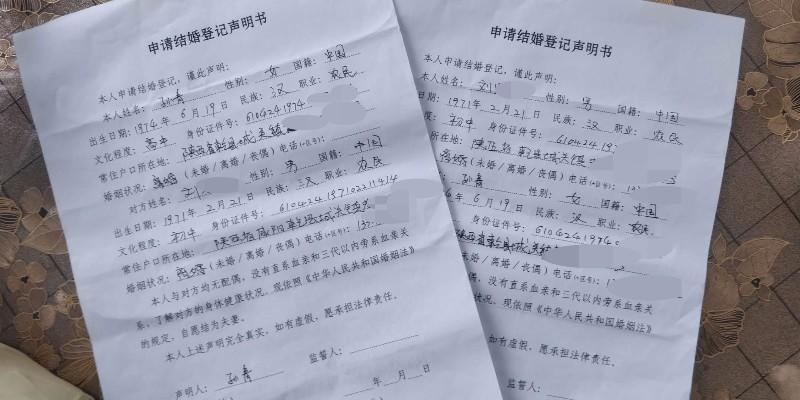 申请结婚登记声明书
本人申请结婚登记，谨此声明：
本人姓名：孙青 性别：女 国籍：中国
出生日期：1974年6月19日 民族：汉 职业：农民
文化程度：高中 身份证件号：6104241974
常住户口所在地：陕西省乾县城关镇
婚姻状况：离婚（未婚/离婚/丧偶）电话(+区号)
对方姓名：刘 性别：男 国籍：中国
出生日期：1971年2月21日 民族：汉 职业：农民
文化程度：初中 身份证件号：610424197102211414
常住户口所在地：陕西省咸阳乾县城关镇
婚姻状况：离婚（未婚/离婚/丧偶）电话(+区号)：13
本人与对方均无配偶，没有直系血亲和三代以内旁系血亲关
系，了解对方的身体健康状况。现依照《中华人民共和国婚姻法》
的规定，自愿结为夫妻。
本人上述声明完全真实，如有虚假，愿承担法律责任。
声明人：孙青 监誓人：
年 月 日
申请结婚登记声明书
本人申请结婚登记，谨此声明：
本人姓名：刘 性别：男 国籍：中国
日期：1971年2月21日 民族：汉 职业：农民
度：初中 身份证件号：61042419
所在地：陕西省乾县城关镇
离婚（未婚/离婚/丧偶）电话(+区号)：1
孙青 性别：女 国籍：中国
6月19日 民族：汉 职业：农民
身份证件号：6104241974
陕西省乾县城关镇
（未婚/离婚/丧偶）电话(+区号)：1
偶，没有直系血亲和三代以内旁系血亲关
状况。现依照《中华人民共和国婚姻法》
如有虚假，愿承担法律责任。
监誓人：
年 月